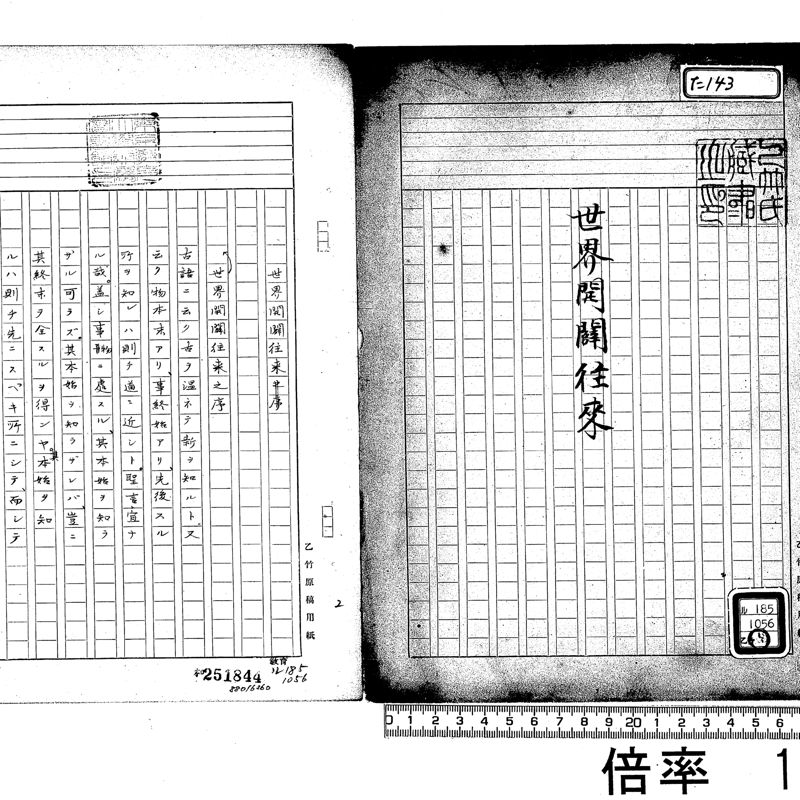 た143
乙竹氏
蔵書
之印
世界開闢往來
ル185
1056
乙竹原稿用
世界開闢往来序
世界開闢往来之序
古語ニ云ク古ヲ温ネテ新ヲ知ルト、又
云ク物本末アリ、事終始アリ、先後スル
所ヲ知レハ則チ道ニ近シト。聖言宜ナ
ル哉。蓋シ事物ニ處スル、其本始ヲ知ラ
ザル可ラズ。其本始ヲ知ラザレバ、豈ニ
其終末ヲ全スルヲ得ンヤ。其本始ヲ知
ルハ則チ先ニスベキ所ニシテ、而シテ
乙竹原稿用紙
2
251844
88016260
教育
ル185
1056
0 1 2 3 4 5 6 7 8 9 20 1 2 3 4 5 6
倍率 1